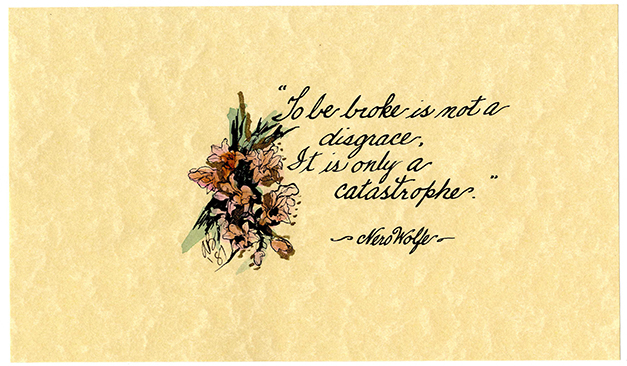 "To be broke is not a
disgrace.
It is only a
catastrophe."
~Nero Wolfe~